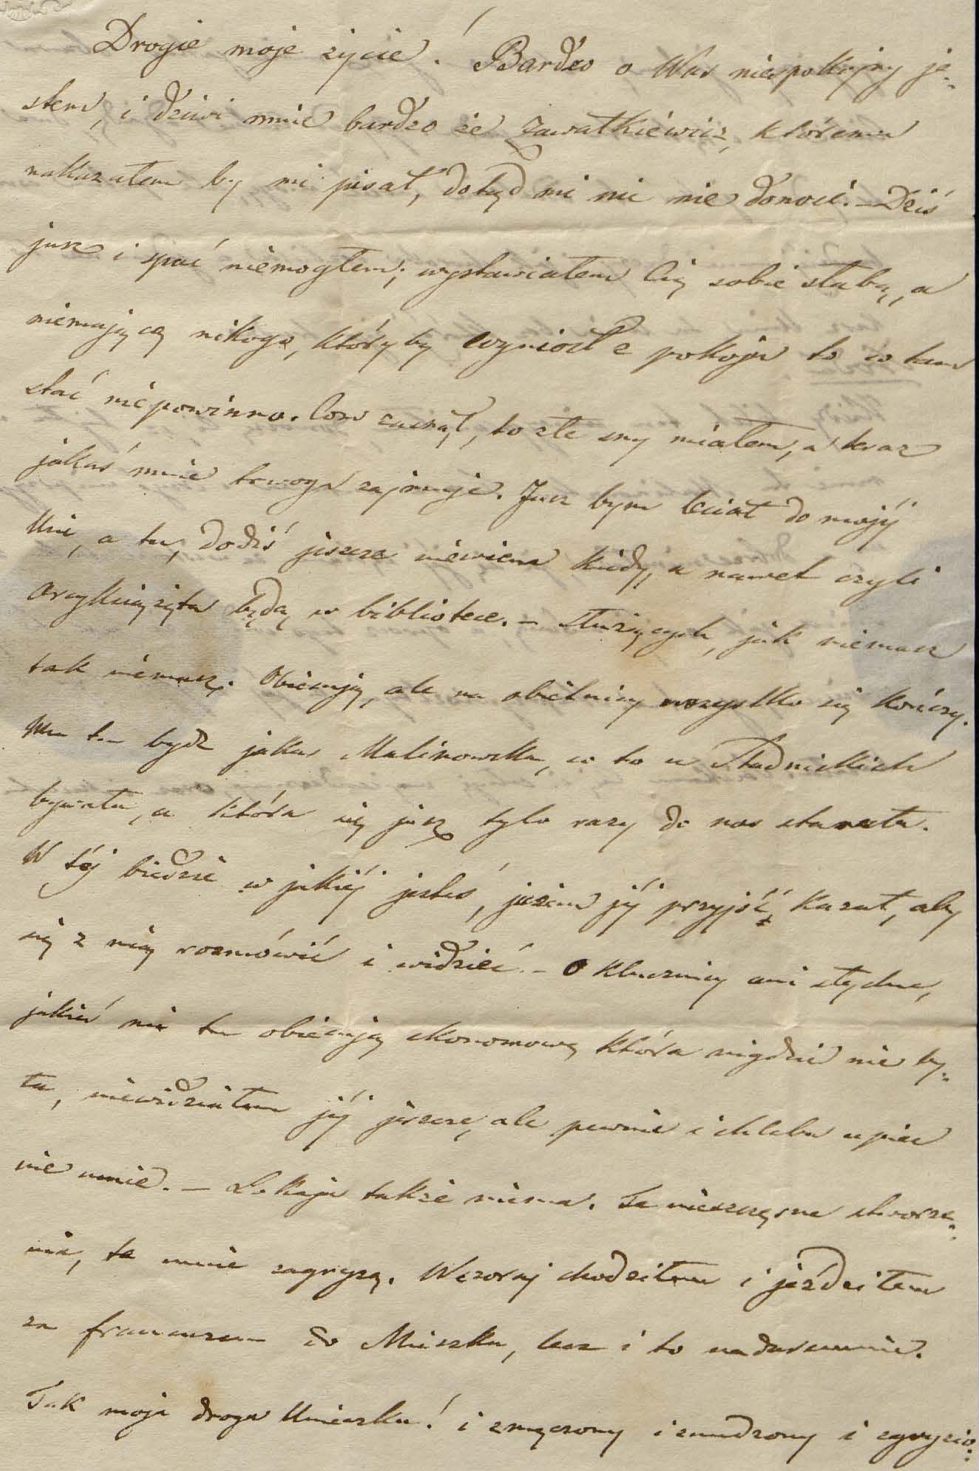 Drogie moje życie! Bardzo o Was niespokojny je=
stem, i dziwi mnie bardzo że Zawatkiewicz, któremu
nakazałem by mi pisał, dotąd mi nic nie donosi. – Dziś
jusz i spać niemogłem; wystawiałem Cię sobie słabą, a
niemającą nikogo, któryby wyniósł z pokoju to co tam
stać niepowinno. Com zasnął, to złe sny miałem, a teraz
jakaś mnie trwoga zajmuje. Jusz bym leciał do mojéj
Uni, a tu, dodziś jeszcze niewiem kiedy, a nawet czyli
Arcyksiążęta będą w bibliotece. – Służących, jak niemasz
tak niemasz. Obiecują, ale na obietnicy wszystko się kończy.
Ma tu bydź jakaś Malinowska, co to u Stadnickich
bywała, a która się jusz tyle razy do nas starała.
W téj biedzie w jakiéj jesteś, jużem jéj przyjść kazał, aby
się z nią rozmówić i widzieć. – O klucznicy ani słychu,
jakąś mi tu obiecują ekonomową która nigdzie nie by=
ła, niewidziałem jéj jeszcze, ale pewnie i chleba upiec
nie umie. – Lokaja także niema. Te nieszczęsne stworze=
nia, te mnie zagryzą. Wczoraj chodziłem i jeździłem
za francuzem do Mieszka, lecz i to nadaremnie.
Tak moja droga Unieczku! i zmęczony i znudzony i zgryzio=